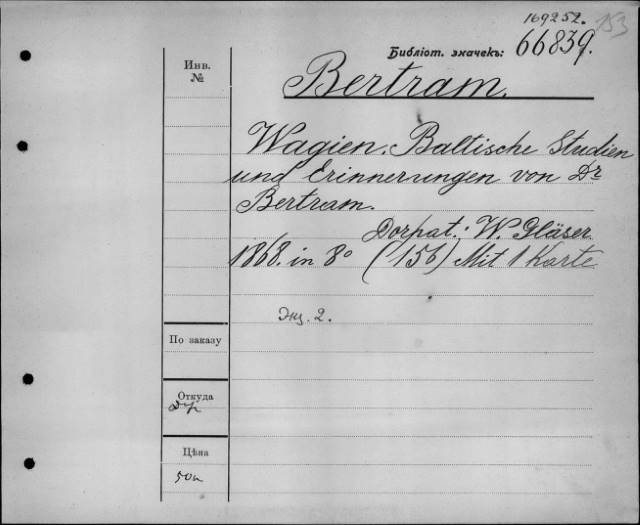 169252. 153
Библіот. значекъ: 66839.
Инв.
№
Bertram.
Wagien. Baltische Studien
und Erinnerungen von Dr
Bertram.
Dorpat: W. Gläser
1868. in 8º (156) Mit 1 Karte
Экз. 2.
По заказу
Откуда
Др
Цѣна
50к